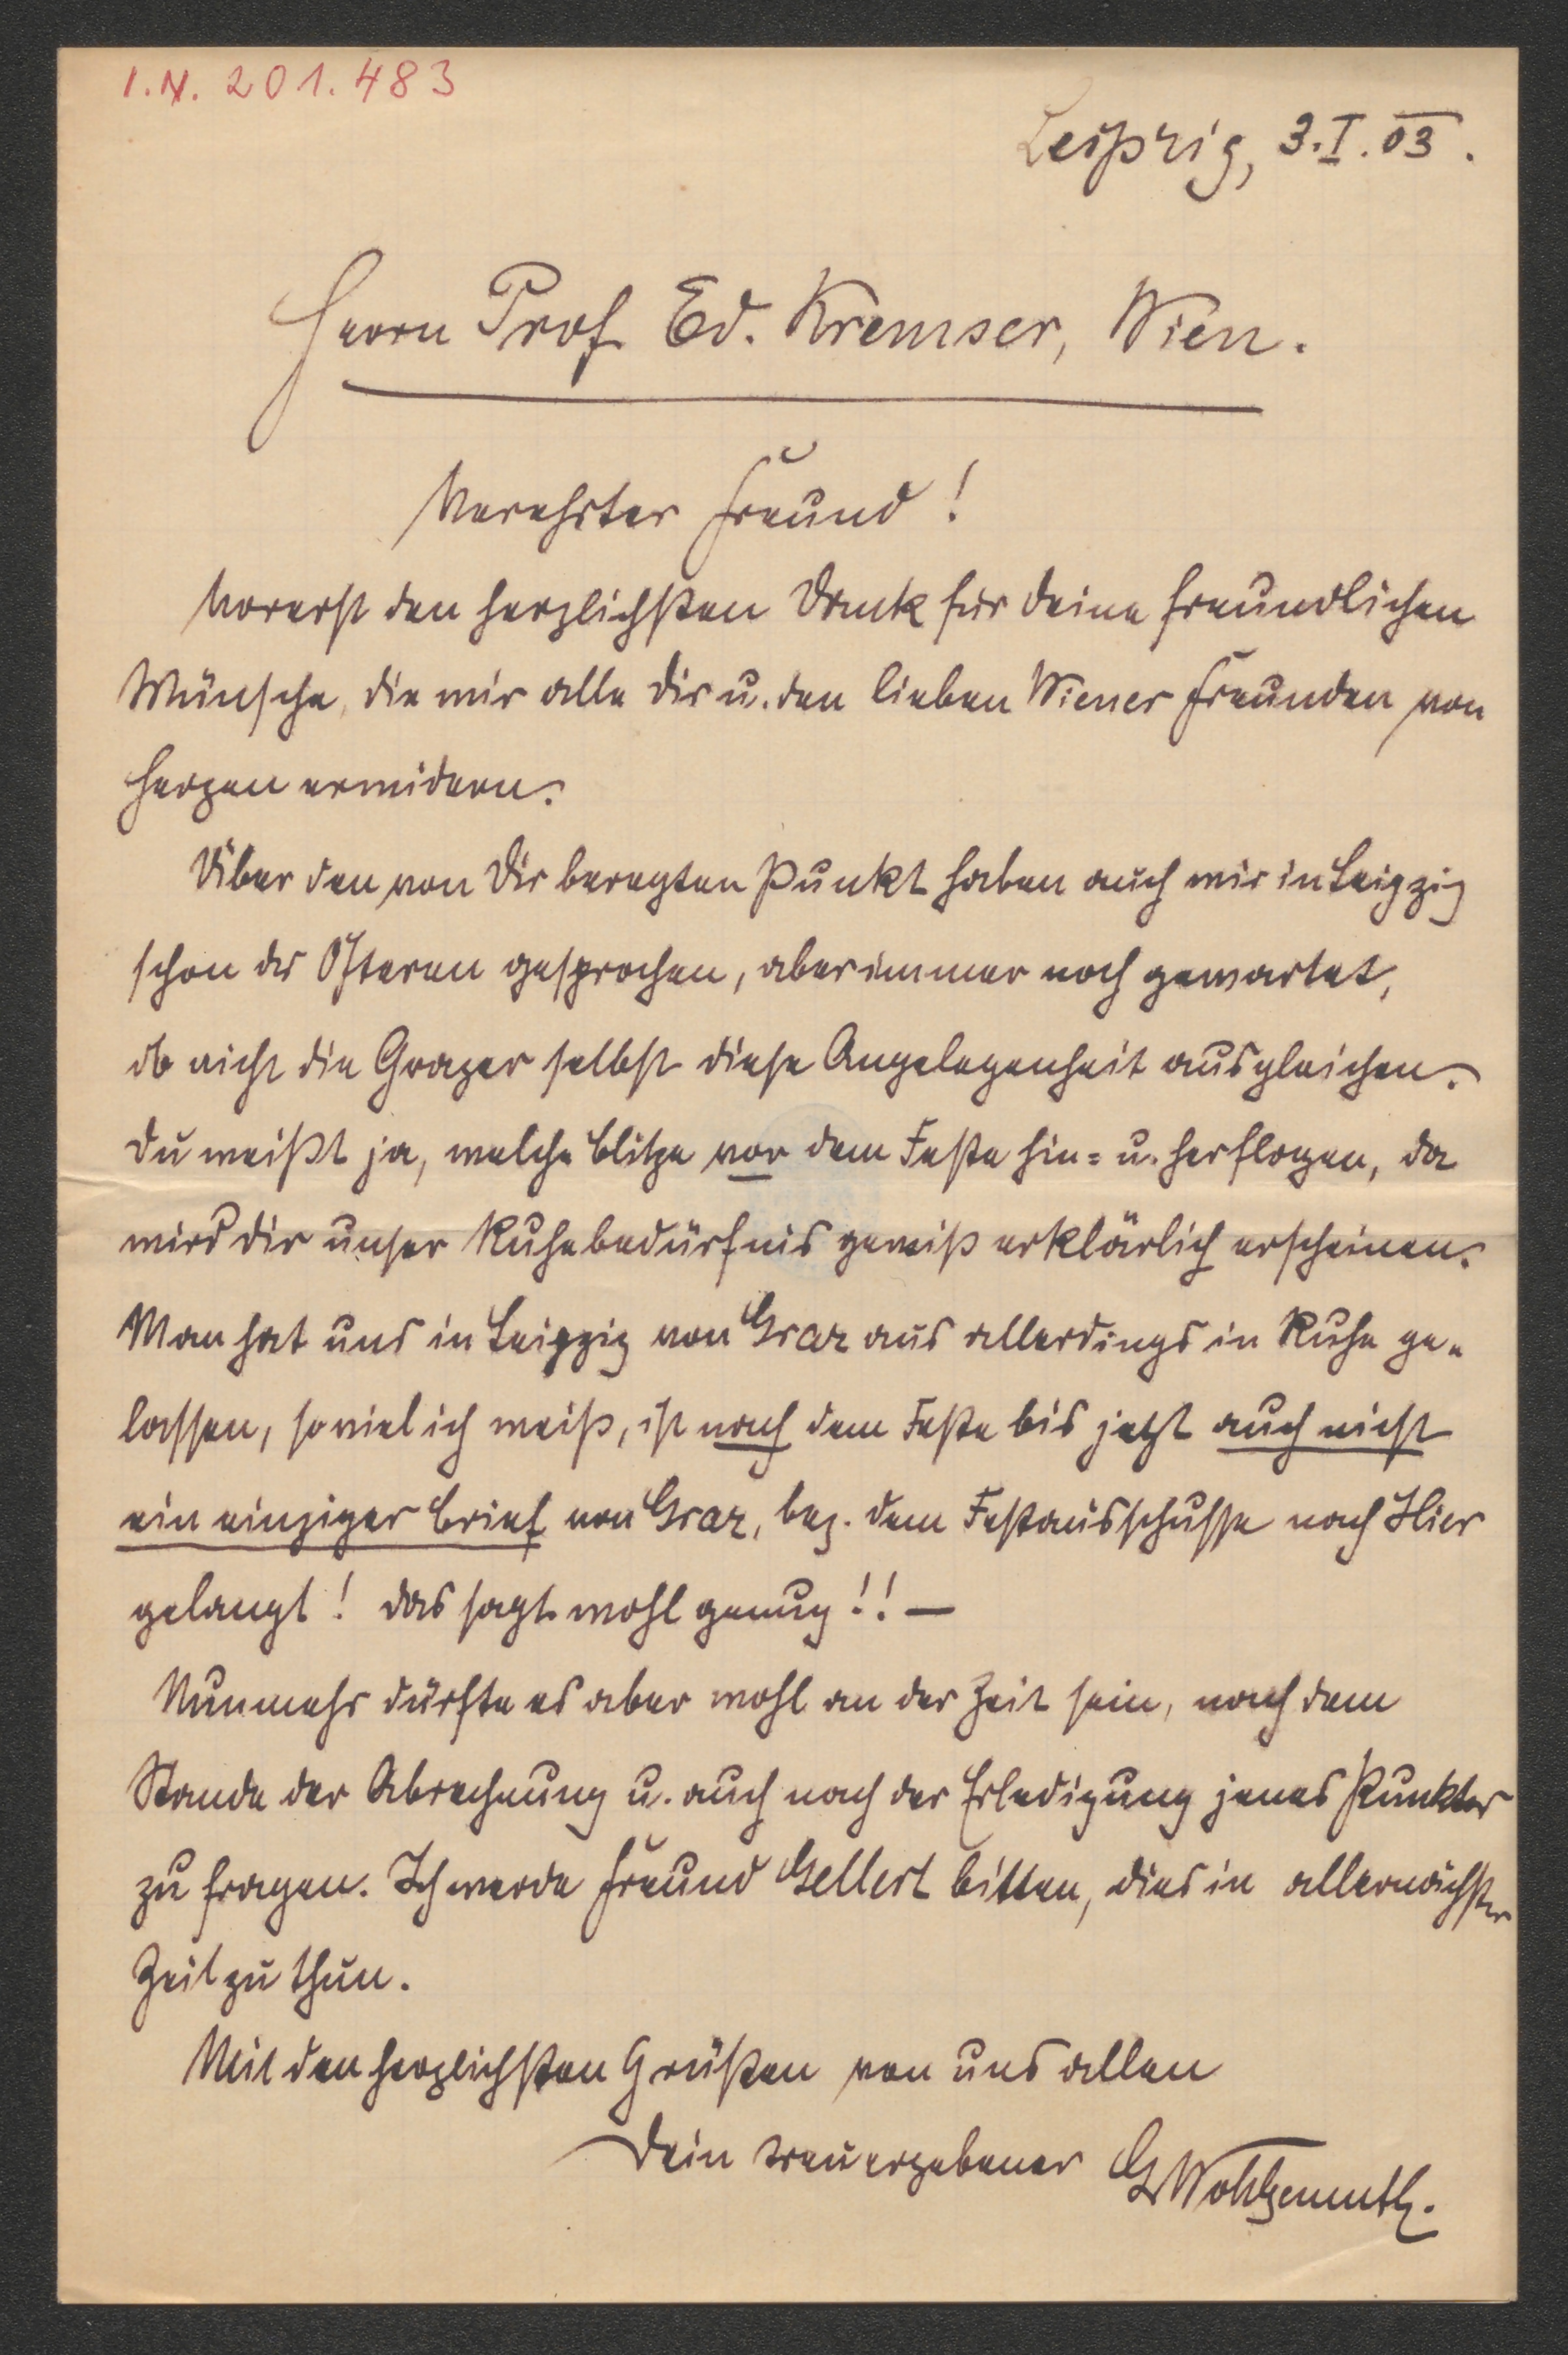 I.N. 201.483
Leipzig, 3.I.03.
Herrn Prof. Ed. Kremser, Wien.
Verehrter Freund!
Vorerst den herzlichsten Dank für Deine freundlichen
Wünsche, die wir alle Dir u. den lieben Wiener Freunden von
Herzen erwidern.
Über den von Dir beregten Punkt haben auch wir in Leipzig
schon des Öfteren gesprochen, aber immer noch gewartet,
ob nicht die Grazer selbst diese Angelegenheit ausgleichen.
Du weißt ja, welche Blitze vor dem Feste hin= u. herflogen, da
wird Dir unser Ruhebedürfnis gewiß erklärlich erscheinen.
Man hat uns in Leipzig von Graz aus allerdings in Ruhe ge=
lassen, soviel ich weiß, ist nach dem Feste bis jetzt auch nicht
ein einziger Brief von Graz, bez. dem Festausschusse nach Hier
gelangt! Das sagt wohl genug!! —
Nunmehr dürfte es aber wohl an der Zeit sein, nach dem
Stande der Abrechnung u. auch nach der Erledigung jenes Punktes
zu fragen. Ich werde Freund Gellert bitten, dies in allernächster
Zeit zu thun.
Mit den herzlichsten Grüßen von uns allen
Dein treuergebener G Wohlgemuth.